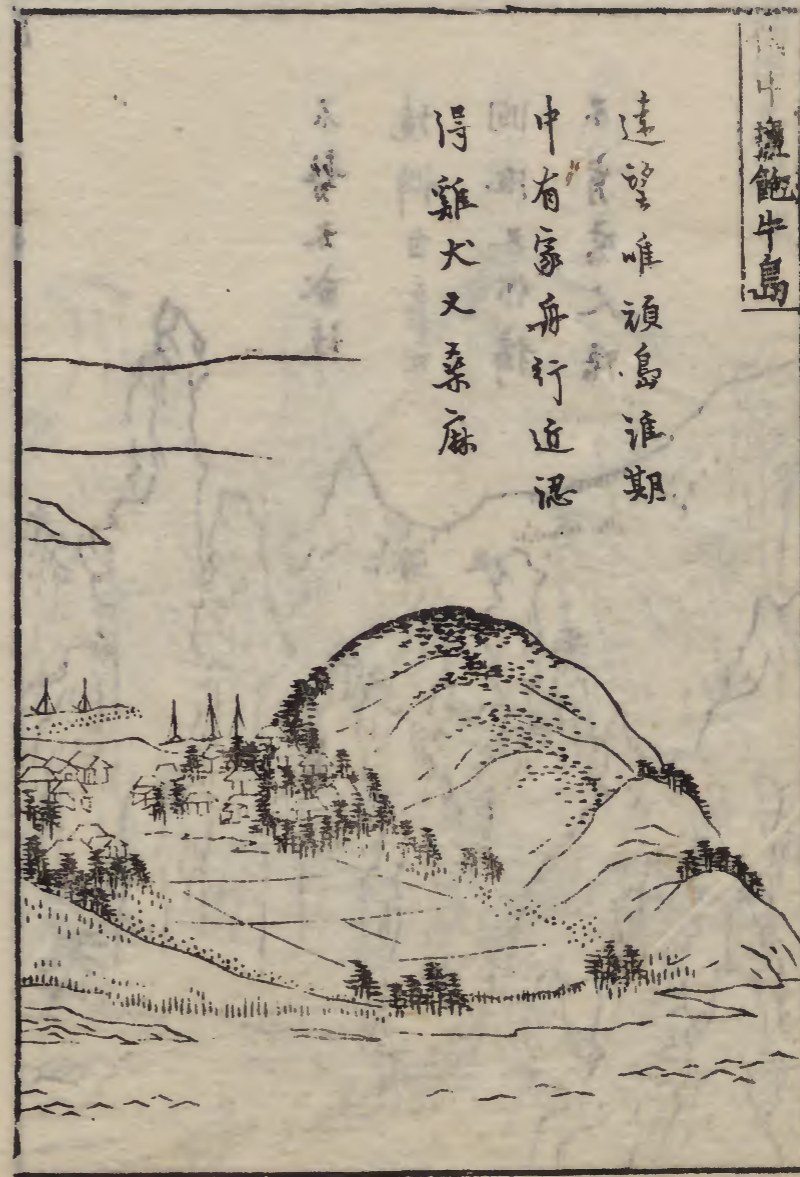 備中鹽飽牛島
遠望唯頑島誰期
中有家舟行近認
得雞犬又桑麻